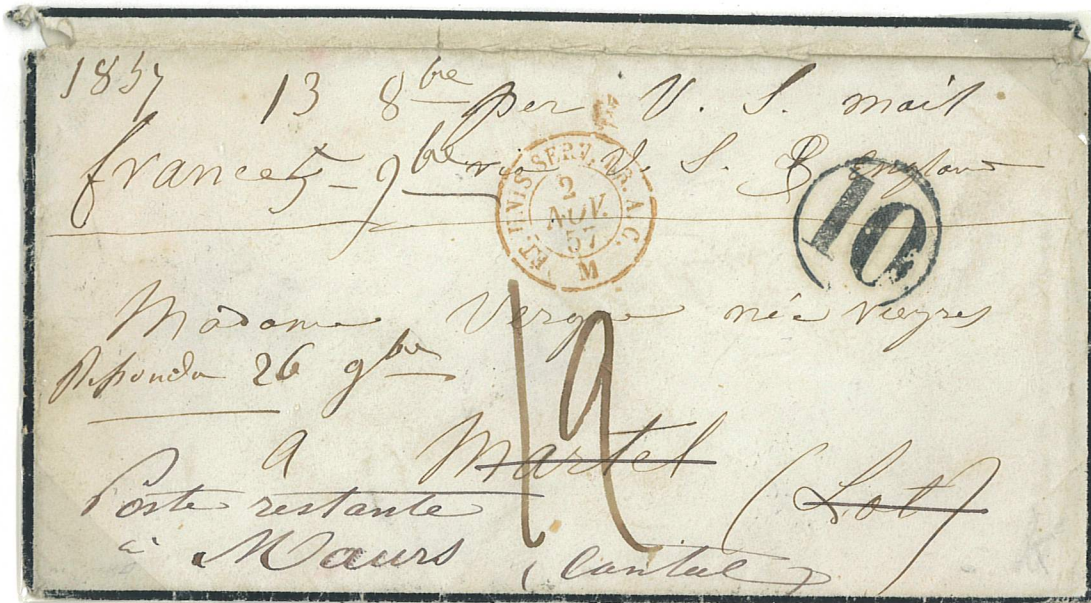 1857 13 8bre per U. S. mail
france 5 - 9bre via U. S. & England
ET. UNIS SERV. BR. A. C.
2
NOV.
57
M
10
Madame Vergne née Vieyres
Répondu 26 9bre
12
a Martel (Lot)
Poste restante
à Maurs (Cantal)